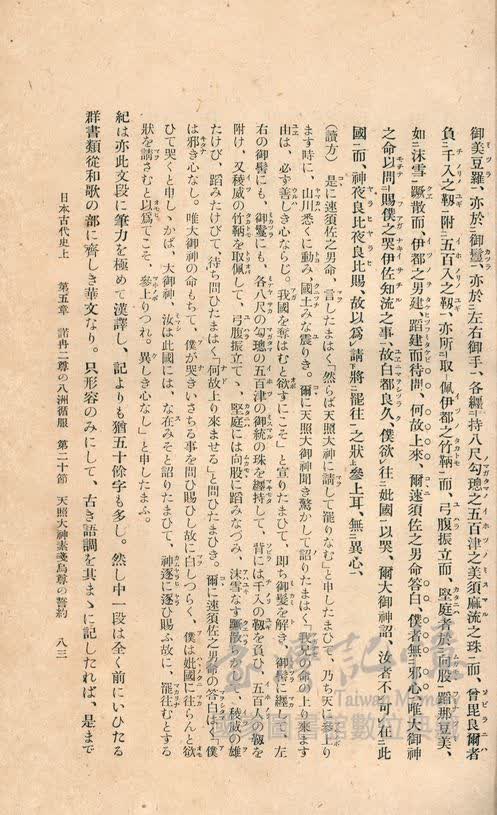 御美豆羅、亦於御鬘、亦於左右御手、各纒持八尺勾璁之五百津之美須麻流之珠而、曾毘良爾者
負千入之靫、附五百入之靫、亦所取佩伊都之竹鞆而、弓腹振立而、堅庭者於向股蹈那豆美、
如沫雪蹶散而、伊都之男建、蹈建而待問、何故上來、爾速須佐之男命答白、僕者無邪心、唯大御神
之命以問賜僕之哭伊佐知流之事、故白都良久、僕欲往妣國以哭、爾大御神詔、汝者不可在此
國而、神夜良比夜良比賜、故以為請將罷往之狀參上耳、無異心、
(讀方) 是に速須佐之男命、言したまはく「然らば天照大神に請して罷りなむ」と申したまひて、乃ち天に參上り
ます時に、山川悉くに動み、國土みな震りき。爾に天照大御神聞き驚かして詔りたまはく「我兄の命の上り來ます
由は、必ず善しき心ならじ。我國を奪はむと欲すにこそ」と宣りたまひて、即ち御髪を解き、御髻に纒して、左
右の御髻にも、御鬘にも、各八尺の勾璁の五百津の御統の珠を纒持して、背には千入の靫を負ひ、五百人の靫を
附け、又稜威の竹鞆を取佩して、弓腹振立てゝ、堅庭には向股に蹈みなづみ、沫雪なす蹶散らかして、稜威の雄
たけび、蹈みたけびて、待ち問ひたまはく「何故上り來ませる」と問ひたまひき。爾に速須佐之男命の答白は「僕
は邪き心なし。唯大御神の命もちて、僕が哭きいさちる事を問ひ賜ひし故に白しつらく、僕は妣國に往らんと欲
ひて哭くと申ししかば、大御神、汝は此國には、な在みそと詔りたまひて、神逐に逐ひ賜ふ故に、罷往むとする
狀を請さむと以為てこそ、參上りつれ。異しき心なし」と申したまふ。
紀は亦此文段に筆力を極めて漢譯し、記よりも猶五十餘字も多し。然し中一段は全く前にいひたる
群書類從和歌の部に齊しき華文なり。只形容のみにして、古き語調を其まゝに記したれば、是まで
日本古代史上 第五章 諾冉二尊の八洲循服 第二十節 天照大神素戔烏尊の誓約 八三